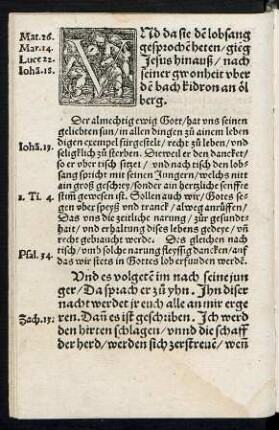 Mat.26.
Mar.14.
Luce 22.
Johā.18.
VNd da sie dē lobsang
gesprochē heten / gieg
Jesus hinauß / nach
seiner gwonheit vber
dē bach Kidron an öl
berg.
Der almechtig ewig Gott / hat vns seinen
geliebten sun / in allen dingen zů ainem leben
digen exempel fürgestelt / recht zů leben / vnd
Johā.19.
seligklich zů sterben. Dieweil er den danckset /
so er vber tisch seget / vnd nach tisch den lob
sang spricht mit seinen Jungern / welchs nitt
ain groß geschrey / sonder ain hertzliche senffte
1. Ti. 4.
stim gewesen ist. Sollen auch wir / Gottes se-
gen vber speyß vnd tranck / alweg anrüffen /
Das vns die zeitliche narung / zur gesundt-
hait / vnd erhaltung dises lebens gedeye / vñ
recht gebraucht werde. Des gleichen nach
tisch / vmb solche narung fleyssig dancken / auf
Psal.34.
das wir stets in Gottes lob erfunden werdē.
Vnd es volgetē im nach seine jun
ger / Da sprach er zů yhn. Jhn diser
nacht werdet jr euch alle an mir erge
Zach.13.
ren. Dañ es ist geschriben. Jch werd
den hirten schlagen / vnnd die schaff
der herd / werden sich zerstreüē / wen̄